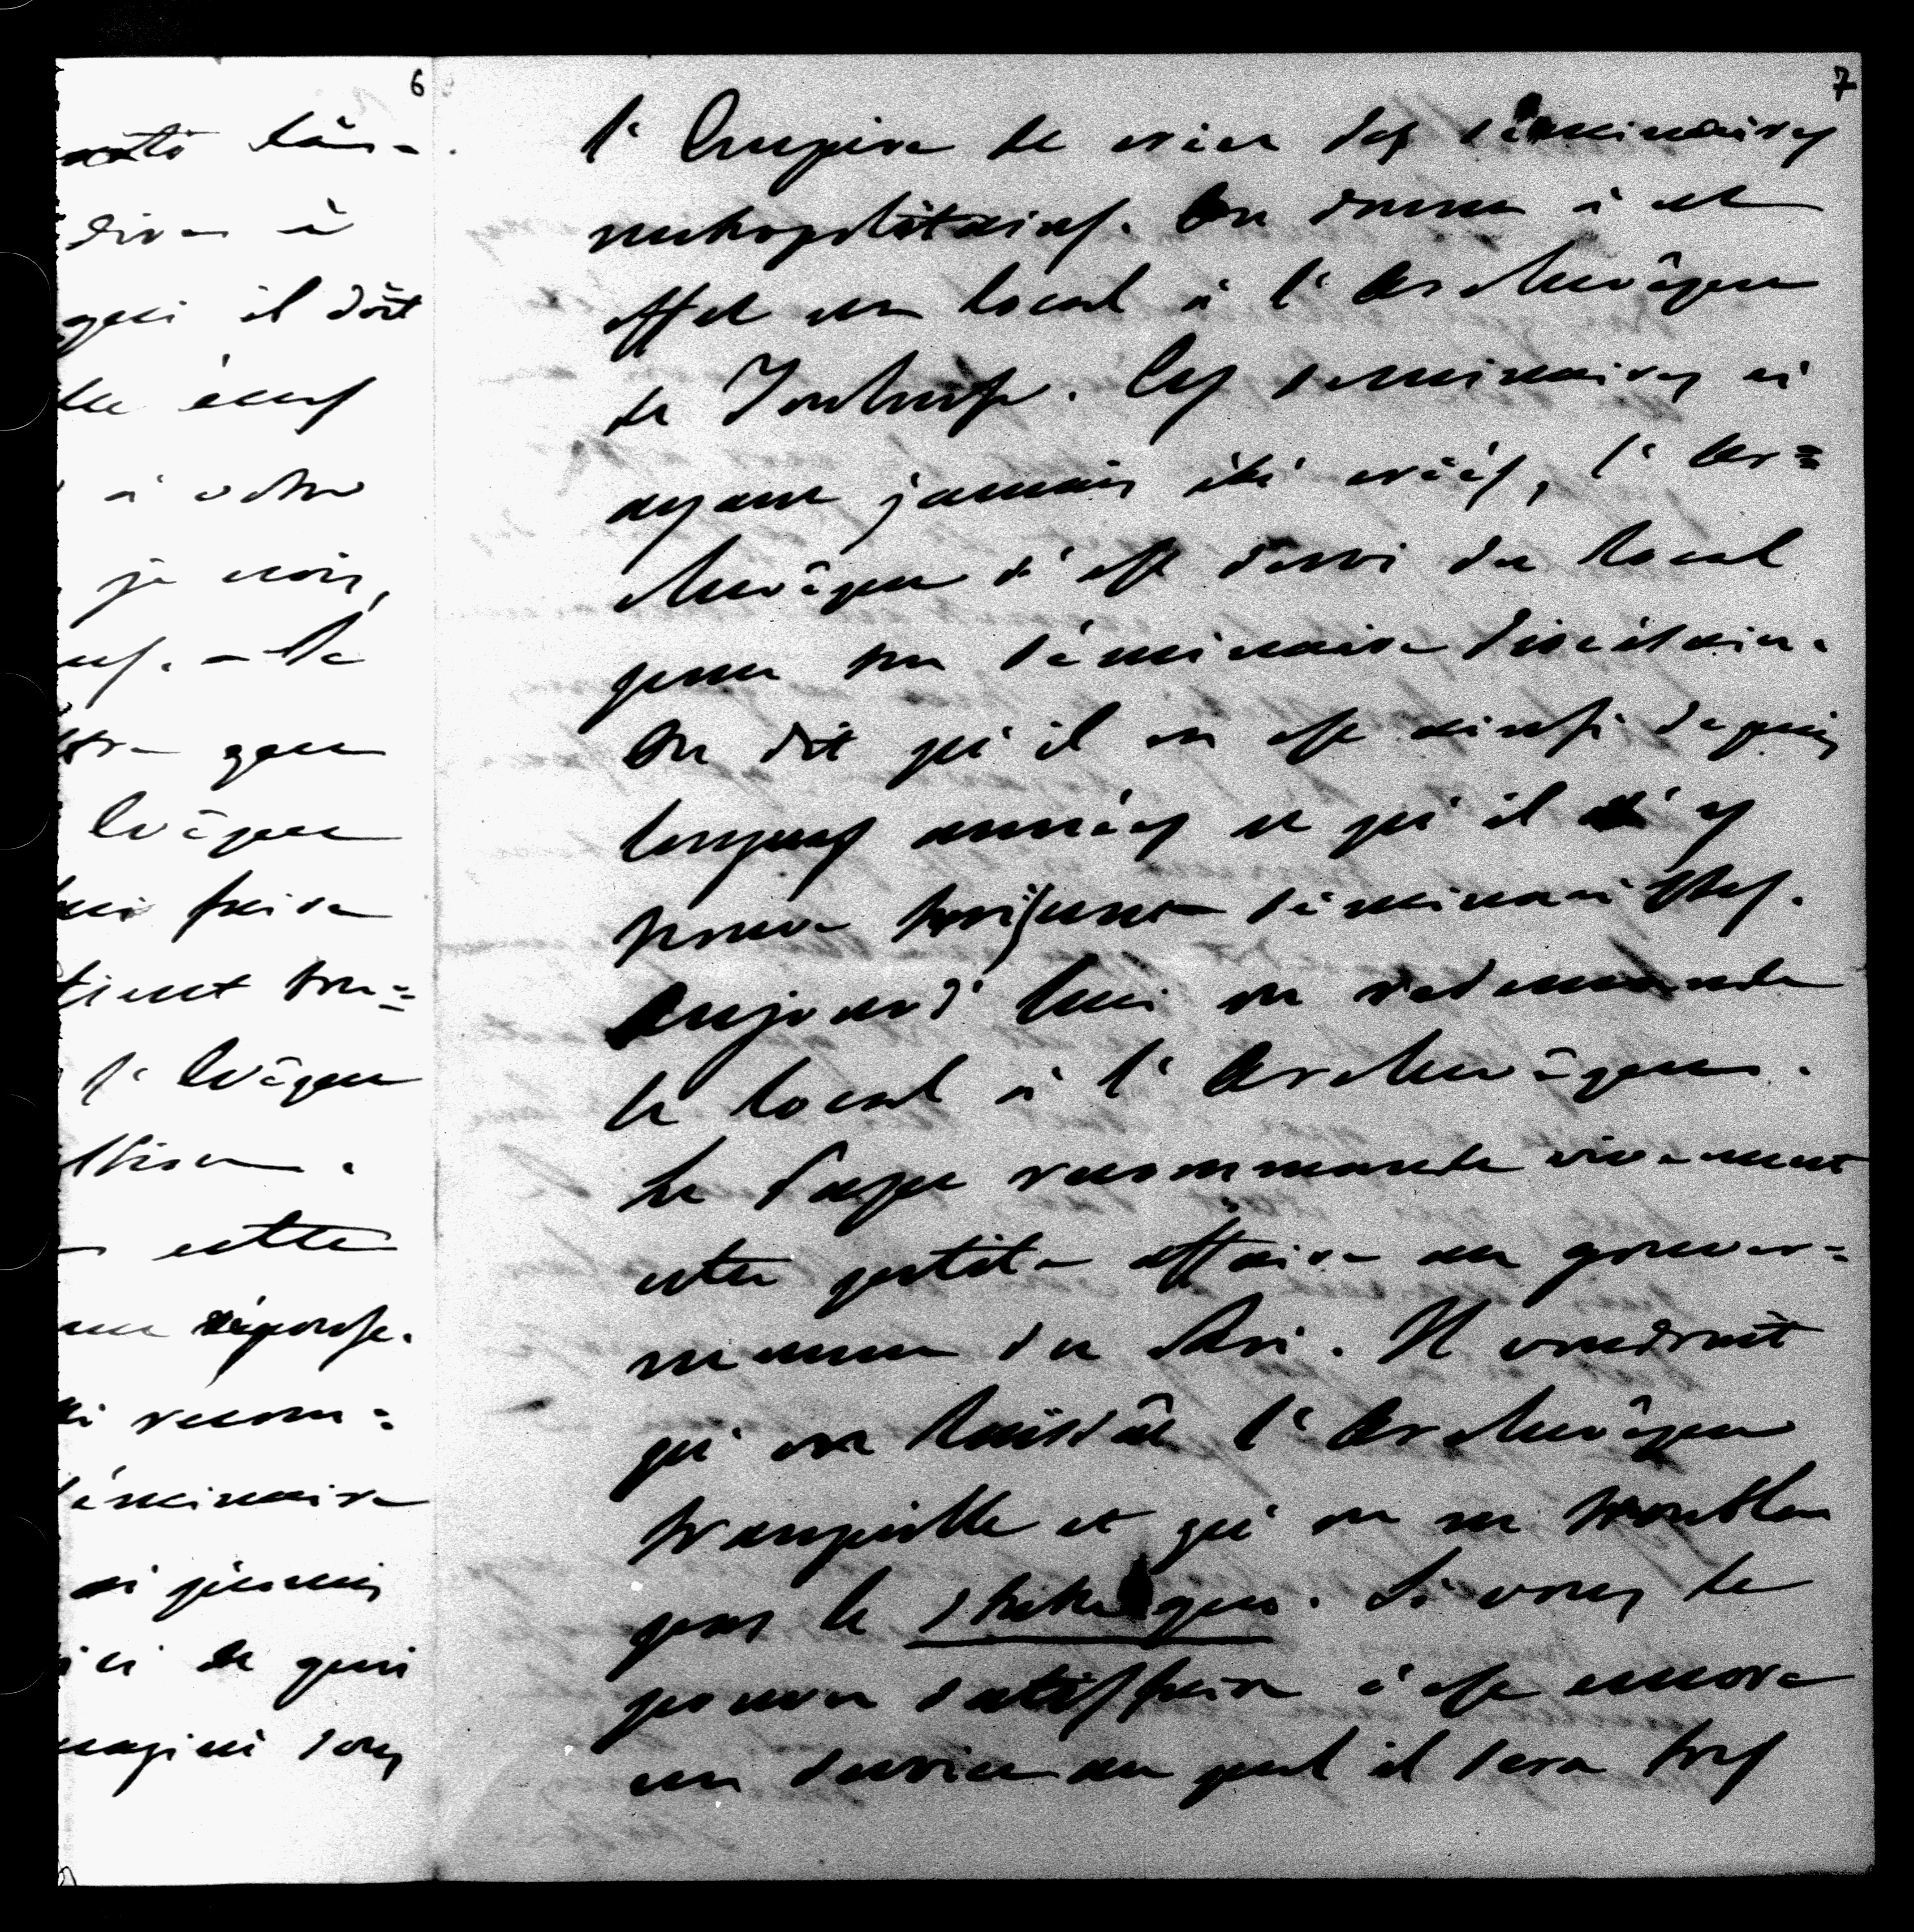 6
-
dire à
qui il doit
à votre
je crois,
que
Évêque
faire
tient tou=
l'Évêque
cette
réponse.
recom=
séminaire
ai jamais
ici de quoi
7
l'Empire de créer des séminaires
métropolitains. On donna à cet
effet un local à l'Archevêque
de Toulouse. Ces séminaires n'
ayant jamais été créés, l'Ar=
chevêque s'est servi du local
pour son séminaire diocésain.
On dit qu'il en est ainsi depuis
longues années et qu'il s'y
trouve séminaristes.
Aujourd'hui on redemande
le local à l'Archevêque.
Le Pape recommande vivement
cette petite affaire au gouver=
nement du Roi. Il voudrait
qu'on laissât l'Archevêque
tranquille et qu'on ne troublât
pas le statu quo. Si vous le
pouvez satisfaire c'est encore
un service au quel il sera très